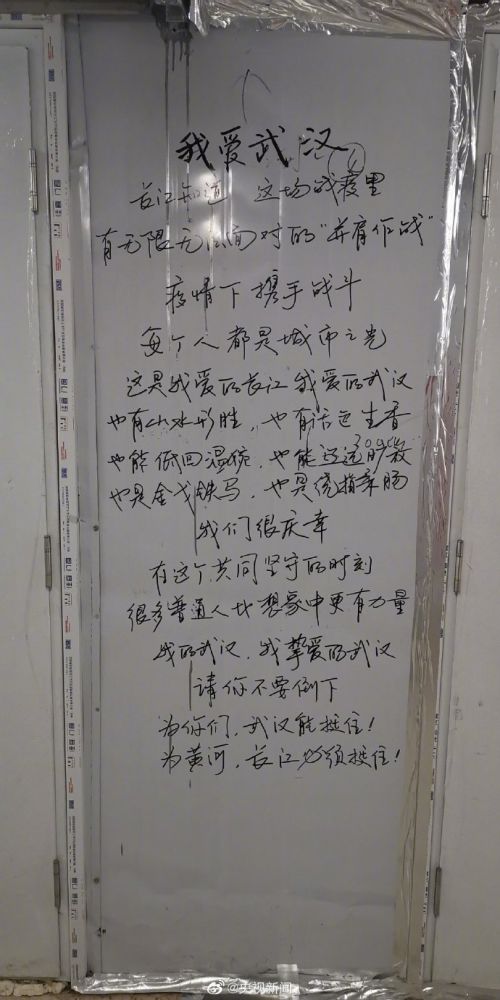 我爱武汉
长江知道 这场战疫里
有无限无法面对的“并肩作战”
疫情下携手战斗
每个人都是城市之光
这是我爱的长江 我爱的武汉
也有山水形胜，也有活色生香
也能低回温婉，也能
也是金戈铁马，也是绕指柔肠
我们很庆幸
在这个共同坚守的时刻
很多普通人比想象中更有力量
我的武汉，我挚爱的武汉
请你不要倒下
为你们，武汉能挺住！
为黄河，长江必须挺住！
@央视新闻